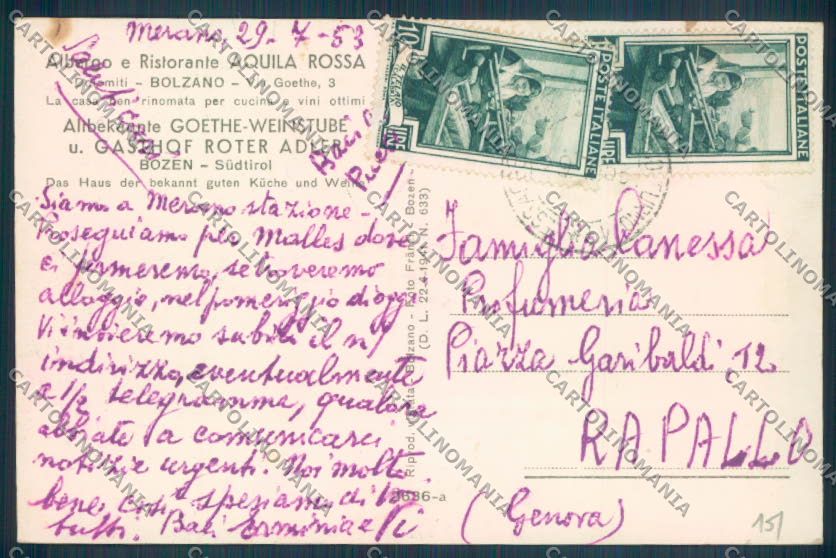 Merano, 29-7-53
Albergo e Ristorante AQUILA ROSSA
Dolomiti - BOLZANO - Via Goethe, 3
La casa ben rinomata per cucina e vini ottimi
Altbekannte GOETHE-WEINSTUBE
u. GASTHOF ROTER ADLER
BOZEN - Südtirol
Das Haus der bekannt guten Küche und Weine
Saluti cari
Siamo a Merano stazione -
Proseguiamo per Malles dove
ci fermeremo, se troveremo
alloggio, nel pomeriggio d'oggi
Vi invieremo subito il ns/
indirizzo, eventualmente
a 1/2 telegramma, qualora
abbiate a comunicarci
notizie urgenti. Noi molto
bene, così speriamo di Voi
tutti. Baci Erminia e
Riprod. Vietata Bolzano - Foto Fränzl, Bozen -
(D. L. 22-4-1941 N. 633)
3686-a
POSTE ITALIANE
LIRE 10
POSTE ITALIANE
LIRE
Famiglia Canessa
Profumeria
Piazza Garibaldi 12
RAPALLO
(Genova)
15/
CARTOLINOMANIA